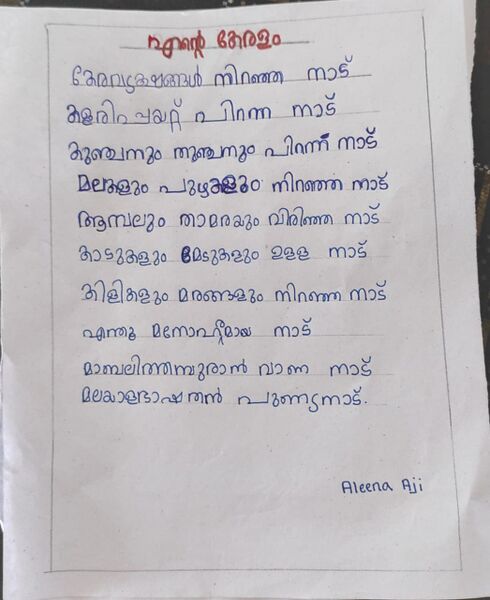 എന്റെ കേരളം
കേരവൃക്ഷങ്ങൾ നിറഞ്ഞ നാട്
കളരിപ്പയറ്റ് പിറന്ന നാട്
കുഞ്ചനും തുഞ്ചനും പിറന്ന് നാട്
മലകളും പുഴകളും നിറഞ്ഞ നാട്
ആമ്പലും താമരയും വിരിഞ്ഞ നാട്
കാടുകളും മേടുകളും ഉള്ള നാട്
കിളികളും മരങ്ങളും നിറഞ്ഞ നാട്
എന്തു മനോഹരമായ നാട്
മാബലിത്തമ്പുരാൻ വാണ നാട്
മലയാളഭാഷതൻ പുണ്യനാട്.
Aleena Aji